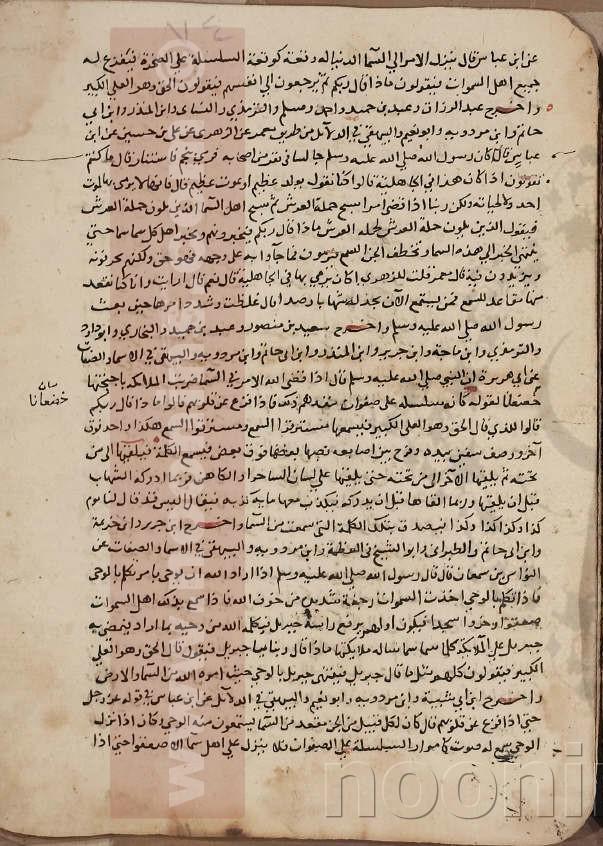 عن ابن عباس قال ينزل الامر الى السما الدنيا له وقعة كوقعة السلسلة على الصخرة فيفزع له
جميع اهل السموات فيقولون ماذا قال ربكم ثم يرجعون الى انفسهم فيقولون الحق وهو العلى الكبير
واخرج عبد الرزاق وعبد بن حميد واحمد ومسلم والترمذي والنساى وابن المنذر وابن ابى
حاتم وابن مردويه وابو نعيم والبيهقي في الدلائل من طريق معمر عن الزهرى عن على بن حسين عن ابن
عباس قال كان رسول الله صلى الله عليه وسلم جالسا في نفر من اصحابه فرمى بنجم فاستنار قال ما كنتم
تقولون اذا كان هذا في الجاهلية قالوا كنا نقول يولد عظيم او يموت عظيم قال فانها لا يرمى بها لموت
احد ولا لحياته ولكن ربنا اذا قضى امرا سبح حملة العرش ثم سبح اهل السما الذين يلون حملة العرش
فيقول الذين يلون حملة العرش لحملة العرش ماذا قال ربكم فيخبرونهم ويخبر اهل كل سما سما حتى
ينتهى الخبر الى هذه السما وتخطف الجن السمع فيرمون فما جاوا به على وجهه فهو حق ولكنهم يحرفونه
ويزيدون فيه قال معمر قلت للزهرى اكان يرمى بها في الجاهلية قال نعم قال ارايت وانا كنا نقعد
منها مقاعد للسمع فمن يستمع الآن يجد له شهابا رصدا قال غلظت وشدد امرها حين بعث
رسول الله صلى الله عليه وسلم واخرج سعيد بن منصور وعبد بن حميد والبخارى وابو داود
والترمذي وابن ماجة وابن جرير وابن المنذر وابن ابى حاتم وابن مردويه والبيهقي في الاسما والصفات
عن ابى هريرة ان النبي صلى الله عليه وسلم قال اذا قضى الله الامر في السما ضربت الملائكة باجنحتها
خضعانا لقوله كانه سلسلة على صفوان ينفذهم ذلك فاذا فزع عن قلوبهم قالوا ماذا قال ربكم
قالوا للذي قال الحق وهو العلى الكبير فيسمعها مسترقوا السمع ومسترقوا السمع هكذا واحد فوق
آخر ووصف سفين بيده وفرج بين اصابعه نصبها بعضها فوق بعض فيسمع الكلمة فيلقيها الى من
تحته ثم يلقيها الآخر الى من تحته حتى يلقيها على لسان الساحر او الكاهن فربما ادركه الشهاب
قبل ان يلقيها وربما القاها قبل ان يدركه فيكذب معها ماية كذبه فيقال اليس قد قال لنا يوم
كذا وكذا كذا وكذا فيصدق بتلك الكلمة التى سمعت من السما واخرج ابن جرير وابن خزيمة
وابن ابى حاتم والطبرانى وابو الشيخ في العظمة وابن مردويه والبيهقي في الاسما والصفات عن
النواس بن سمعان قال قال رسول الله صلى الله عليه وسلم اذا اراد الله ان يوحى بامر تكلم بالوحى
فاذا تكلم بالوحى اخذت السموات رجفة شديدة من خوف الله فاذا سمع بذلك اهل السموات
صعقوا وخروا سجدا فيكون اولهم يرفع راسه جبريل فيكلمه الله من وحيه بما اراد فيمضى به
جبريل على الملائكة كلما مر سما سما ساله ملايكتها ماذا قال ربنا يا جبريل فيقول قال الحق وهو العلى
الكبير فيقولون كلهم مثل ما قال جبريل فينتهى جبريل بالوحى حيث امره الله من السما والارض
واخرج ابن ابى شيبة وابن مردويه وابو نعيم والبيهقي في الدلائل عن ابن عباس في قوله عز وجل
حتى اذا فزع عن قلوبهم قال كان لكل قبيل من الجن مقعد من السما يستمعون منه الوحى وكان اذا نزل
الوحى سمع له صوت كامرار السلسلة على الصفوان فلا ينزل على اهل سما الا صعقوا حتى اذا
خضعانا